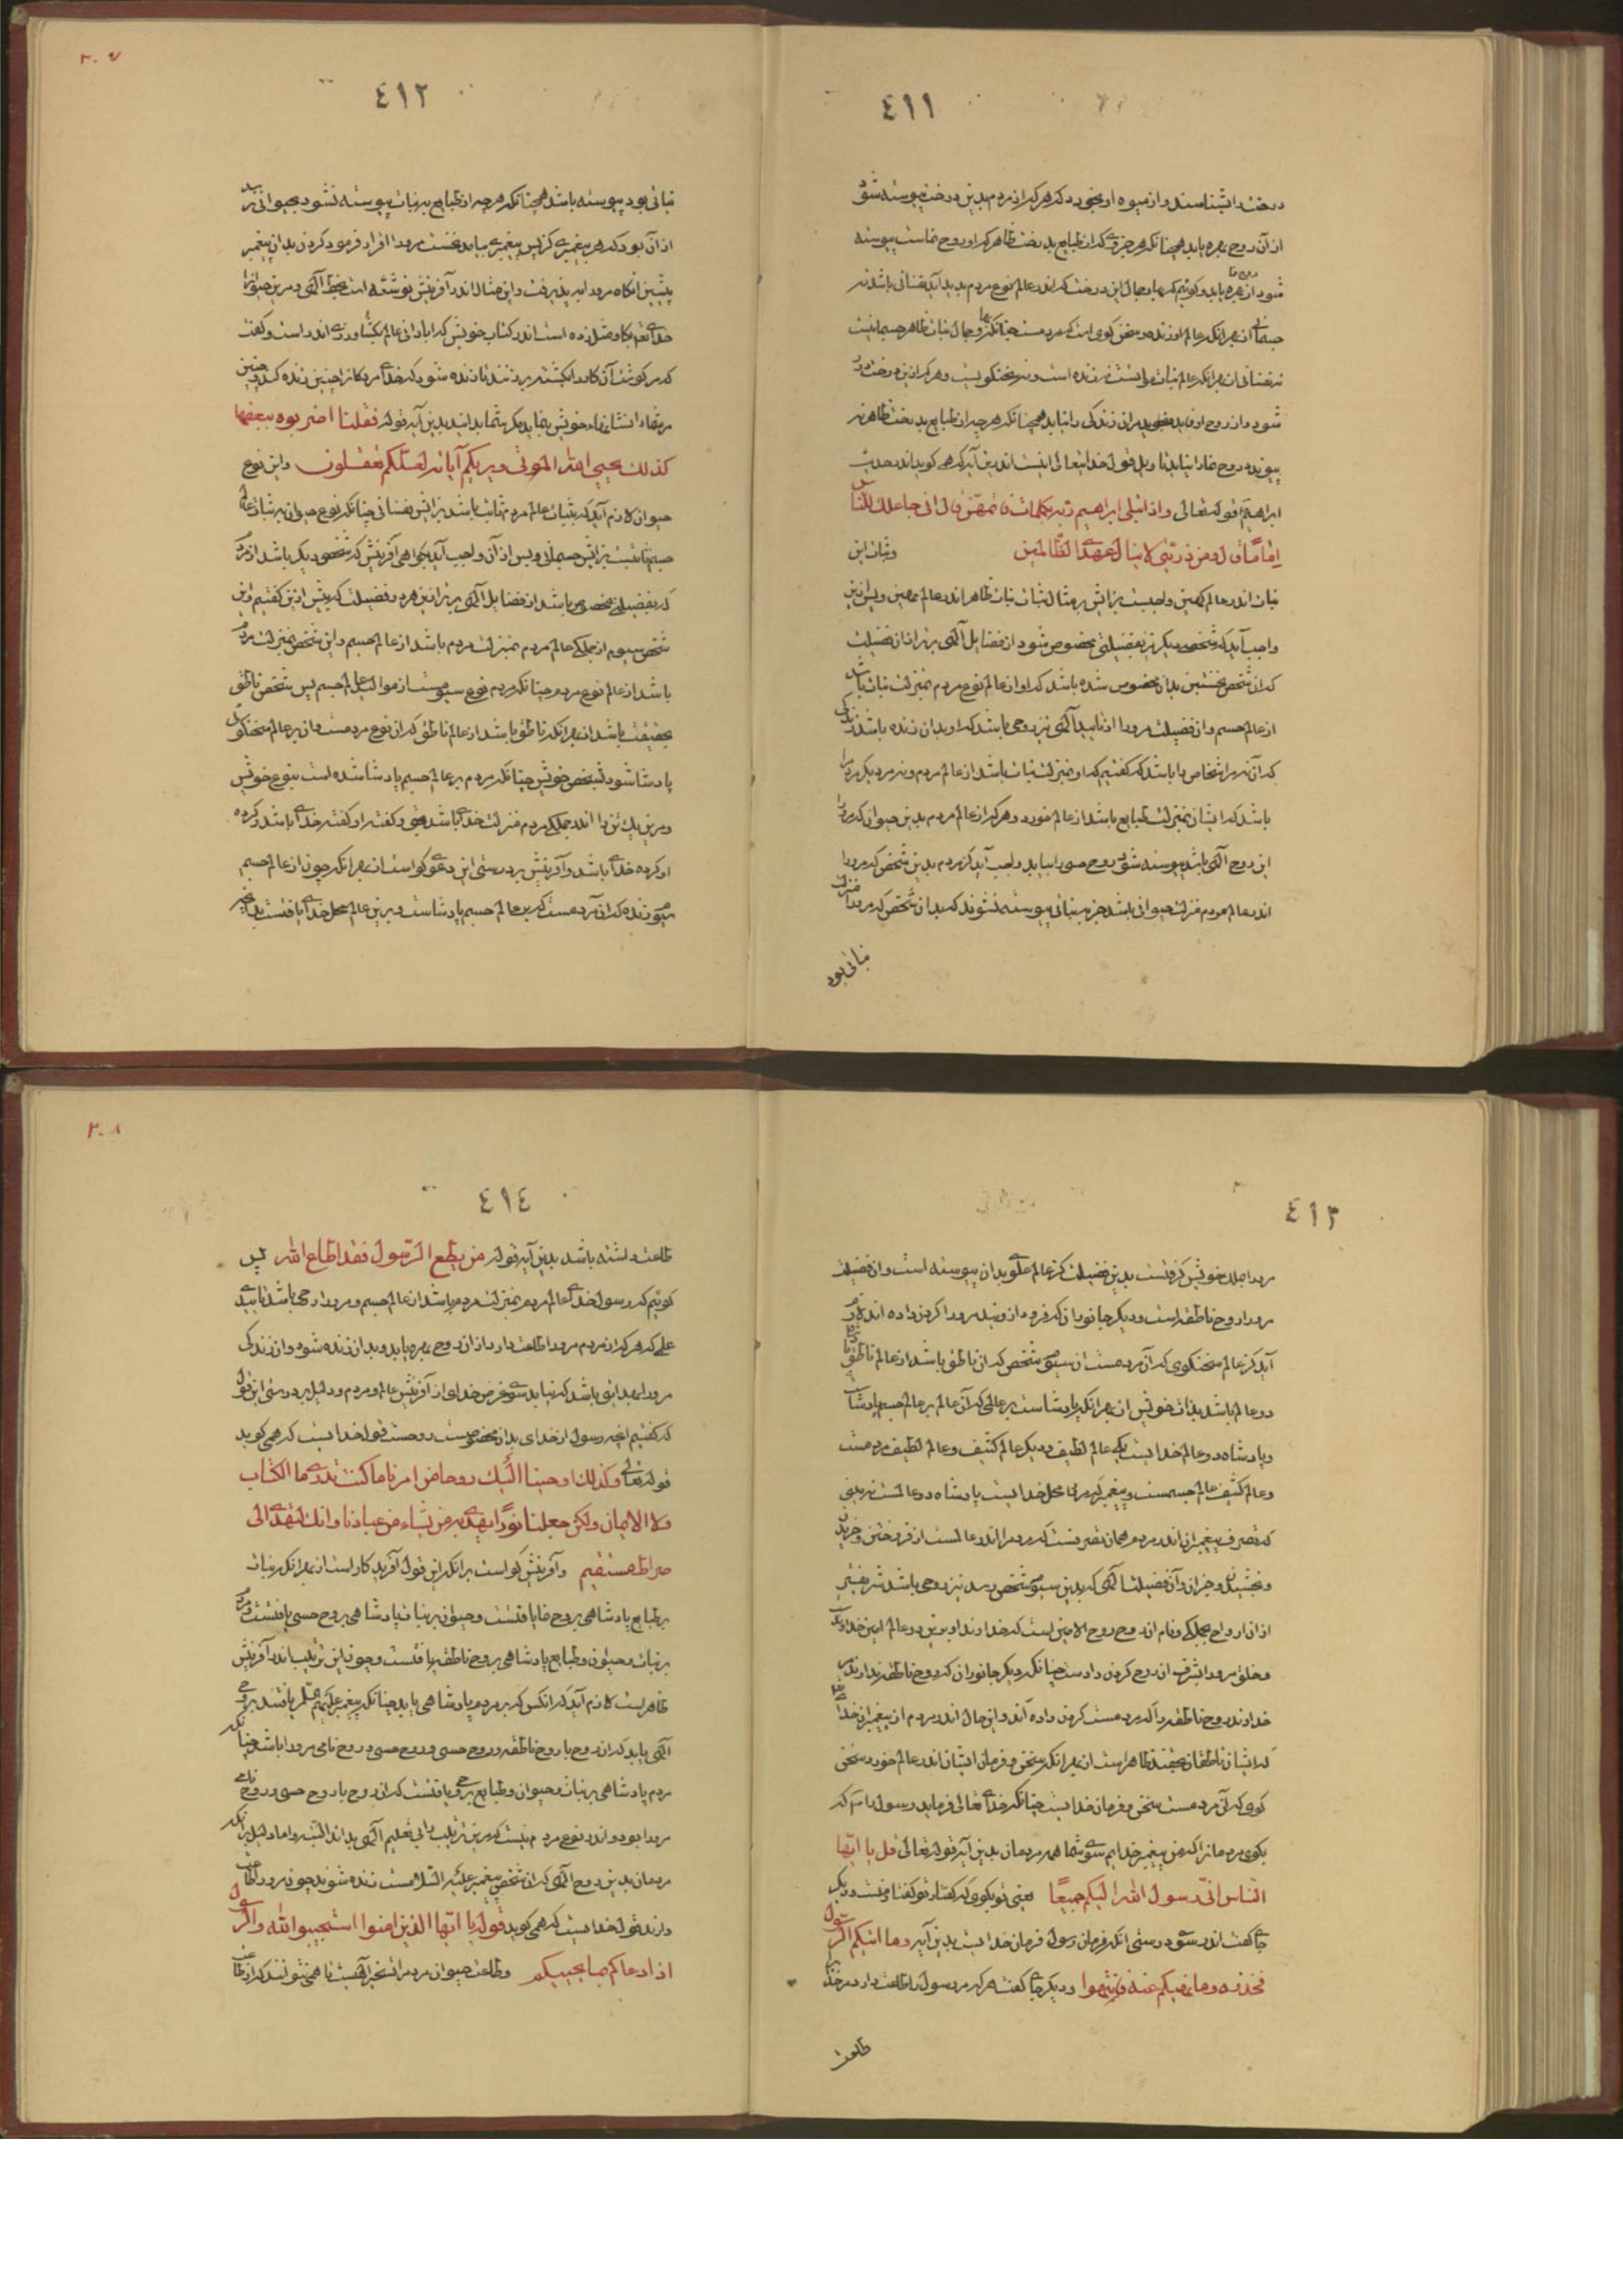 ٤١١
درخت را بشناسند و از میوه او بخورد که هر که از مردم بدین درخت پیوسته شود
از آن روح بهره یابد همچنانکه هر جزوی که از طبایع بدرخت ظاهر که او روح نماست پیوسته
شود از روح نما بهره یابد و گوئیم که بها و جمال این درخت که اندر عالم نوع مردم پدید آید نفسانی باشد نه
جسمانی از بهر آنکه عالم او زنده و سخن گوی است که مردمست چنانکه بها و جمال نبات ظاهر جسمانیست
نه نفسانی از بهر آنکه عالم نبات نه زنده است و نه سخنگویست و هر که ازین درخت دور
شود و از روح او نیابد مر زندگی را نیابد همچنانکه هر چه از طبایع بدرخت ظاهر نه
پیوندد روح نما را نیابد تاویل قول خدایتعالی اینست اندرین آیه که همی گوید اندر حدیث
ابراهیم قوله تعالی واذ ابتلی ابراهیم ربه بکلمات فاتمهن قال انی جاعلک للناس
اماما قال ومن ذریتی لا ینال عهدی الظالمین و ثبات این
نبات اندر عالم کهین واجبست بر آفرینش بر مثال ثبات نبات ظاهر اندر عالم مهین و پس ازین
واجب آید که شخصی دیگر نیز بفضیلتی مخصوص شود از فضایل الهی برتر از آن فضیلت
که آن شخص نخستین بدان مخصوص شده باشد که او از عالم نوع مردم بمنزلت نبات باشد
از عالم جسم و آن فضیلت مر او را از تایید الهی نیز روحی باشد که او بدان زنده باشد زندگی
که آن نه مر اشخاص را باشد که گفتیم که او بمنزلت نبات باشد از عالم مردم و نه مر دیگر مردم را
باشد که ایشان بمنزلت طبایع باشد از عالم خورد و هر که از عالم مردم بدین حیوان که مر او را
این روح الهی باشد پیوسته شود روح حسی را بیابد واجب آید کز مردم بدین شخص که مر او را
اندر عالم مردم منزلت حیوانی باشد جز مر نباتی پیوسته نشوند که بدان شخص که مر او را منزلت
نباتی بود
٤١٢
نباتی بود پیوسته باشد همچنانکه هر چه از طبایع بر نبات پیوسته نشود بحیوانی نرسد
از آن بود که هر پیغمبری کز پس پیغمبری بیاید نخست مر او را اقرار فرمود کردن بدان پیغمبر
پیشین آنگاه مر او را بپذیرفت و این مثال اندر آفرینش نوشته است بخط الهی و مرین صورت را
خدای تعالی بگاو مثل زده است اندر کتاب خویش که آبادانی عالم بکشاورزی اندر است و گفت
که مر گوشت آن گاو را بکشته بر زنند تا زنده شود که خدای مردگان را چنین زنده کند و چنین
مر شما را نشانیهاء خویش بنماید مگر شما بدانید بدین آیه قوله فقلنا اضربوه ببعضها
کذلک یحیی الله الموتی ویریکم آیاته لعلکم تعقلون و این نوع
حیوان لازم آید که بثبات عالم مردم ثابت باشد بر آفرینش نفسانی چنانکه نوع حیوان بر ثبات عالم
جسم ثابتست بر آفرینش جسمانی و پس از آن واجب آید بگواهی آفرینش که شخصی دیگر باشد از مردم
که بفضیلتی مخصوص باشد از فضایل الهی برتر ازین هر دو فضیلت که پیش ازین گفتیم و این
شخص سیوم از جملگی عالم مردم بمنزلت مردم باشد از عالم جسم و این شخص بمنزلت مردم
باشد از عالم نوع مردم چنانکه مردم نوع سیومست از موالید عالم جسم پس شخص ناطق
بحقیقت باشد از بهر آنکه ناطق باشد از عالم ناطق که آن نوع مردمست و آن بر عالم سخنگوی
پادشا شود بشخص خویش چنانکه مردم بر عالم جسم پادشا شده است بنوع خویش
و مرین یک تن را اندر جملگی مردم منزلت خدای باشد و گفته او گفته خدای باشد و کرده
او کرده خدای باشد و آفرینش بر درستی این دعوی گواست از بهر آنکه چون از عالم جسم
زنده که آن مردمست که بر عالم جسم پادشاست و برین عالم محل خدای یافتست بدانچه
٢٠٧
٤١٣
مر او را ملک خویش گرفتست بدین فضیلت کز عالم علوی بدان پیوسته است و آن فضیلت
مر او را روح ناطقه است و دیگر جانوران که فرود از ویند مر او را گردن داده اند لازم
آید کز عالم سخنگوی که آن مردمست از سیوم شخص که آن ناطق باشد از عالم ناطق پادشا
دو عالم باشد بذات خویش از بهر آنکه پادشاست بر عالمی که آن عالم بر عالم جسم پادشاست
و پادشاه دو عالم خدایست یکی عالم لطیف و دیگر عالم کثیف و عالم لطیف مردمست
و عالم کثیف عالم جسمست و پیغمبر که مر او را محل خدایست پادشاه دو عالمست نه بینی
که تصرف پیغمبران اندر مردم همان تصرفست که مردم را اندر عالمست از فروختن و خریدن
و بخشیدن و جز آن و آن فضیلت الهی که بدین سیوم شخص رسد نیز روحی باشد شریفتر
از آن ارواح جملگی و نام آن روح روح الامین است که خداوند او برین دو عالم امین خداوندست
و خلق مر او را بشرف آن روح گردن دادست چنانکه دیگر جانوران که روح ناطقه ندارند مر
خداوند روح ناطقه را که مردمست گردن داده اند و این حال اندر مردم از پیغمبران خدای
که ایشان ناطقان بحقیقتند ظاهر است از بهر آنکه سخن و فرمان ایشان اندر عالم خورد سخن
گوی که آن مردمست سخن و فرمان خدایست چنانکه خدای تعالی فرماید رسول را که
بگوی مردمان را که من پیغمبر خدایم سوی شما همه مردمان بدین آیه قوله تعالی قل یا ایها
الناس انی رسول الله الیکم جمیعا یعنی تو بگوی که گفتار تو گفتار منست و دیگر
جای گفت اندر درستی آنکه فرمان رسول فرمان خدایست بدین آیه وما اتیکم الرسول
فخذوه وما نهیکم عنه فانتهوا و دیگر جای گفت هر که مر رسول را طاعت دارد مر خدای را
طاعت
٤١٤
طاعت داشته باشد بدین آیه قوله من یطع الرسول فقد اطاع الله پس
گوئیم که رسول خدای از عالم مردم بمنزلت مردم باشد از عالم جسم و مر او را روحی باشد تاییدی
علمی که هر که از مردم مر او را طاعت دارد از آن روح بهره یابد و بدان زنده شود و آن زندگی
مر او را بدانچه باشد که بیابد سوی غرض خدای از آفرینش عالم و مردم و دلیل بر درستی این قول
که گفتیم آنچه رسول از خدای بدان مخصوصست روحست قول خدایست که همی گوید
قوله تعالی وکذلک اوحینا الیک روحا من امرنا ما کنت تدری ما الکتاب
ولا الایمان ولکن جعلناه نورا نهدی به من نشاء من عبادنا وانک لتهدی الی
صراط مستقیم و آفرینش گواست بر آنکه این قول آفریدگار است از بهر آنکه نبات
بر طبایع پادشاهی بروح نما یافتست و حیوان بر نبات پادشاهی بروح حسی یافتست و مردم
بر نبات و حیوان و طبایع پادشاهی بروح ناطقه یافتست و چون این ترتیب اندر آفرینش
ظاهر است لازم آید که آنکس که بر مردم پادشاهی یابد چنانکه پیغمبر علیهم السلام یافتند بروحی
الهی یابد که آن روح با روح ناطقه و روح حسی و روح نامی مر او را باشد چنانکه
مردم پادشاهی بر نبات و حیوان و طبایع بروحی یافتست که آن روح با روح حسی و روح نامی
مر او را بود و اندر نوع مردم نیست که مرین ترتیب را بی تعلیم الهی بداند البته و اما دلیل بر آنکه
مردمان بدین روح الهی که آن شخص پیغمبر علیه السلامست زنده شوند چون مر او را طاعت
دارند قول خدایست که همی گوید قوله یا ایها الذین امنوا استجیبوا لله وللرسول
اذا دعاکم لما یحییکم و طاعت حیوان مردم را بتسخیر الهیست تا همی نتوانند کز طاعت
٢٠٨